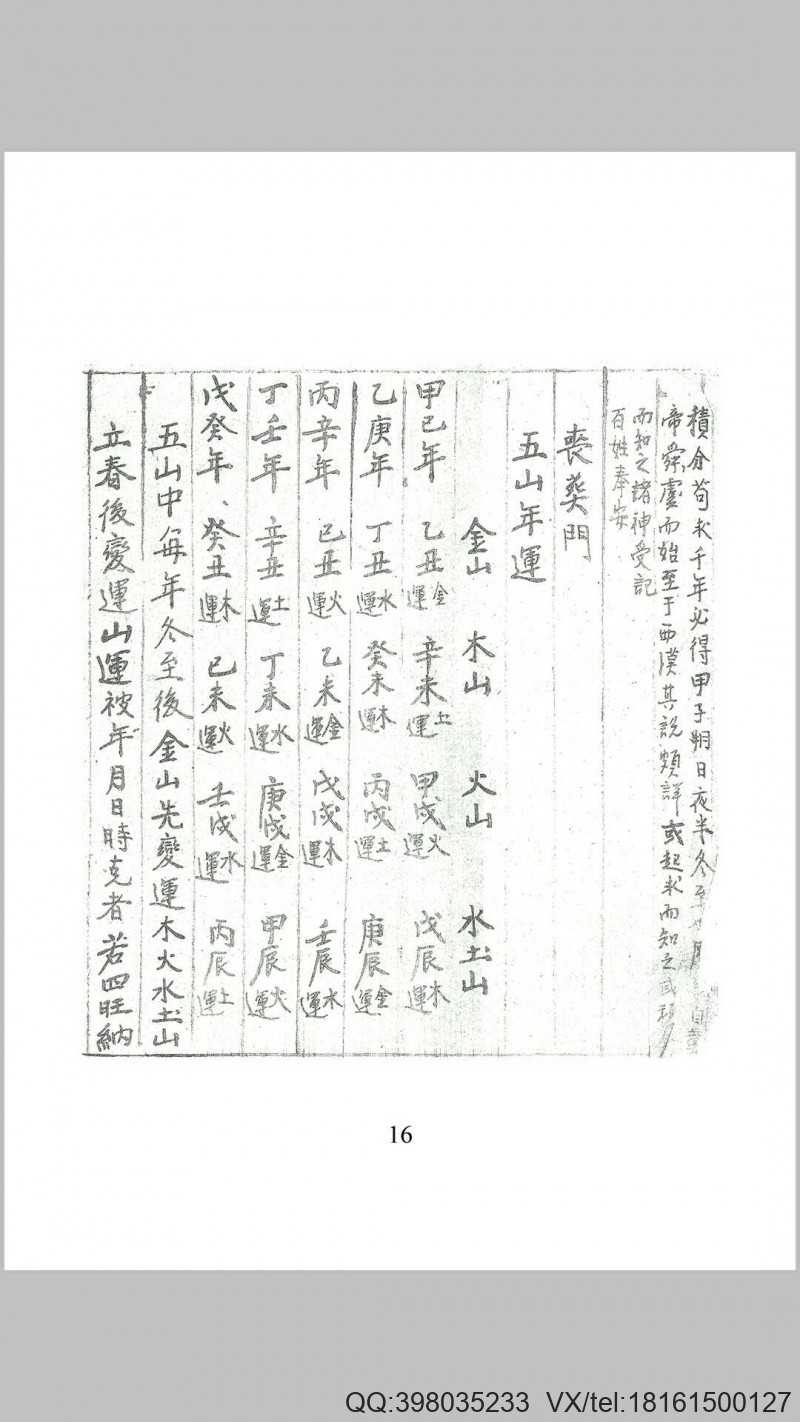 積分苟求千年必得甲子朔日夜半冬至
帝舜虞而始至于西漢其說頗詳或起求而知之或
而知之諸神受記
百姓奉安
喪葬門
五山年運
金山 木山 火山 水土山
甲己年 乙丑金運 辛未土運 甲戌火運 戊辰木運
乙庚年 丁丑水運 癸未木運 丙戌土運 庚辰金運
丙辛年 己丑火運 乙未金運 戊戌木運 壬辰水運
丁壬年 辛丑土運 丁未水運 庚戌金運 甲辰火運
戊癸年、癸丑木運 己未火運 壬戌水運 丙辰土運
五山中每年冬至後金山先變運木火水土山
立春後變運山運被年月日時克者若四旺納
16
QQ:398035233 VX/tel:18161500127